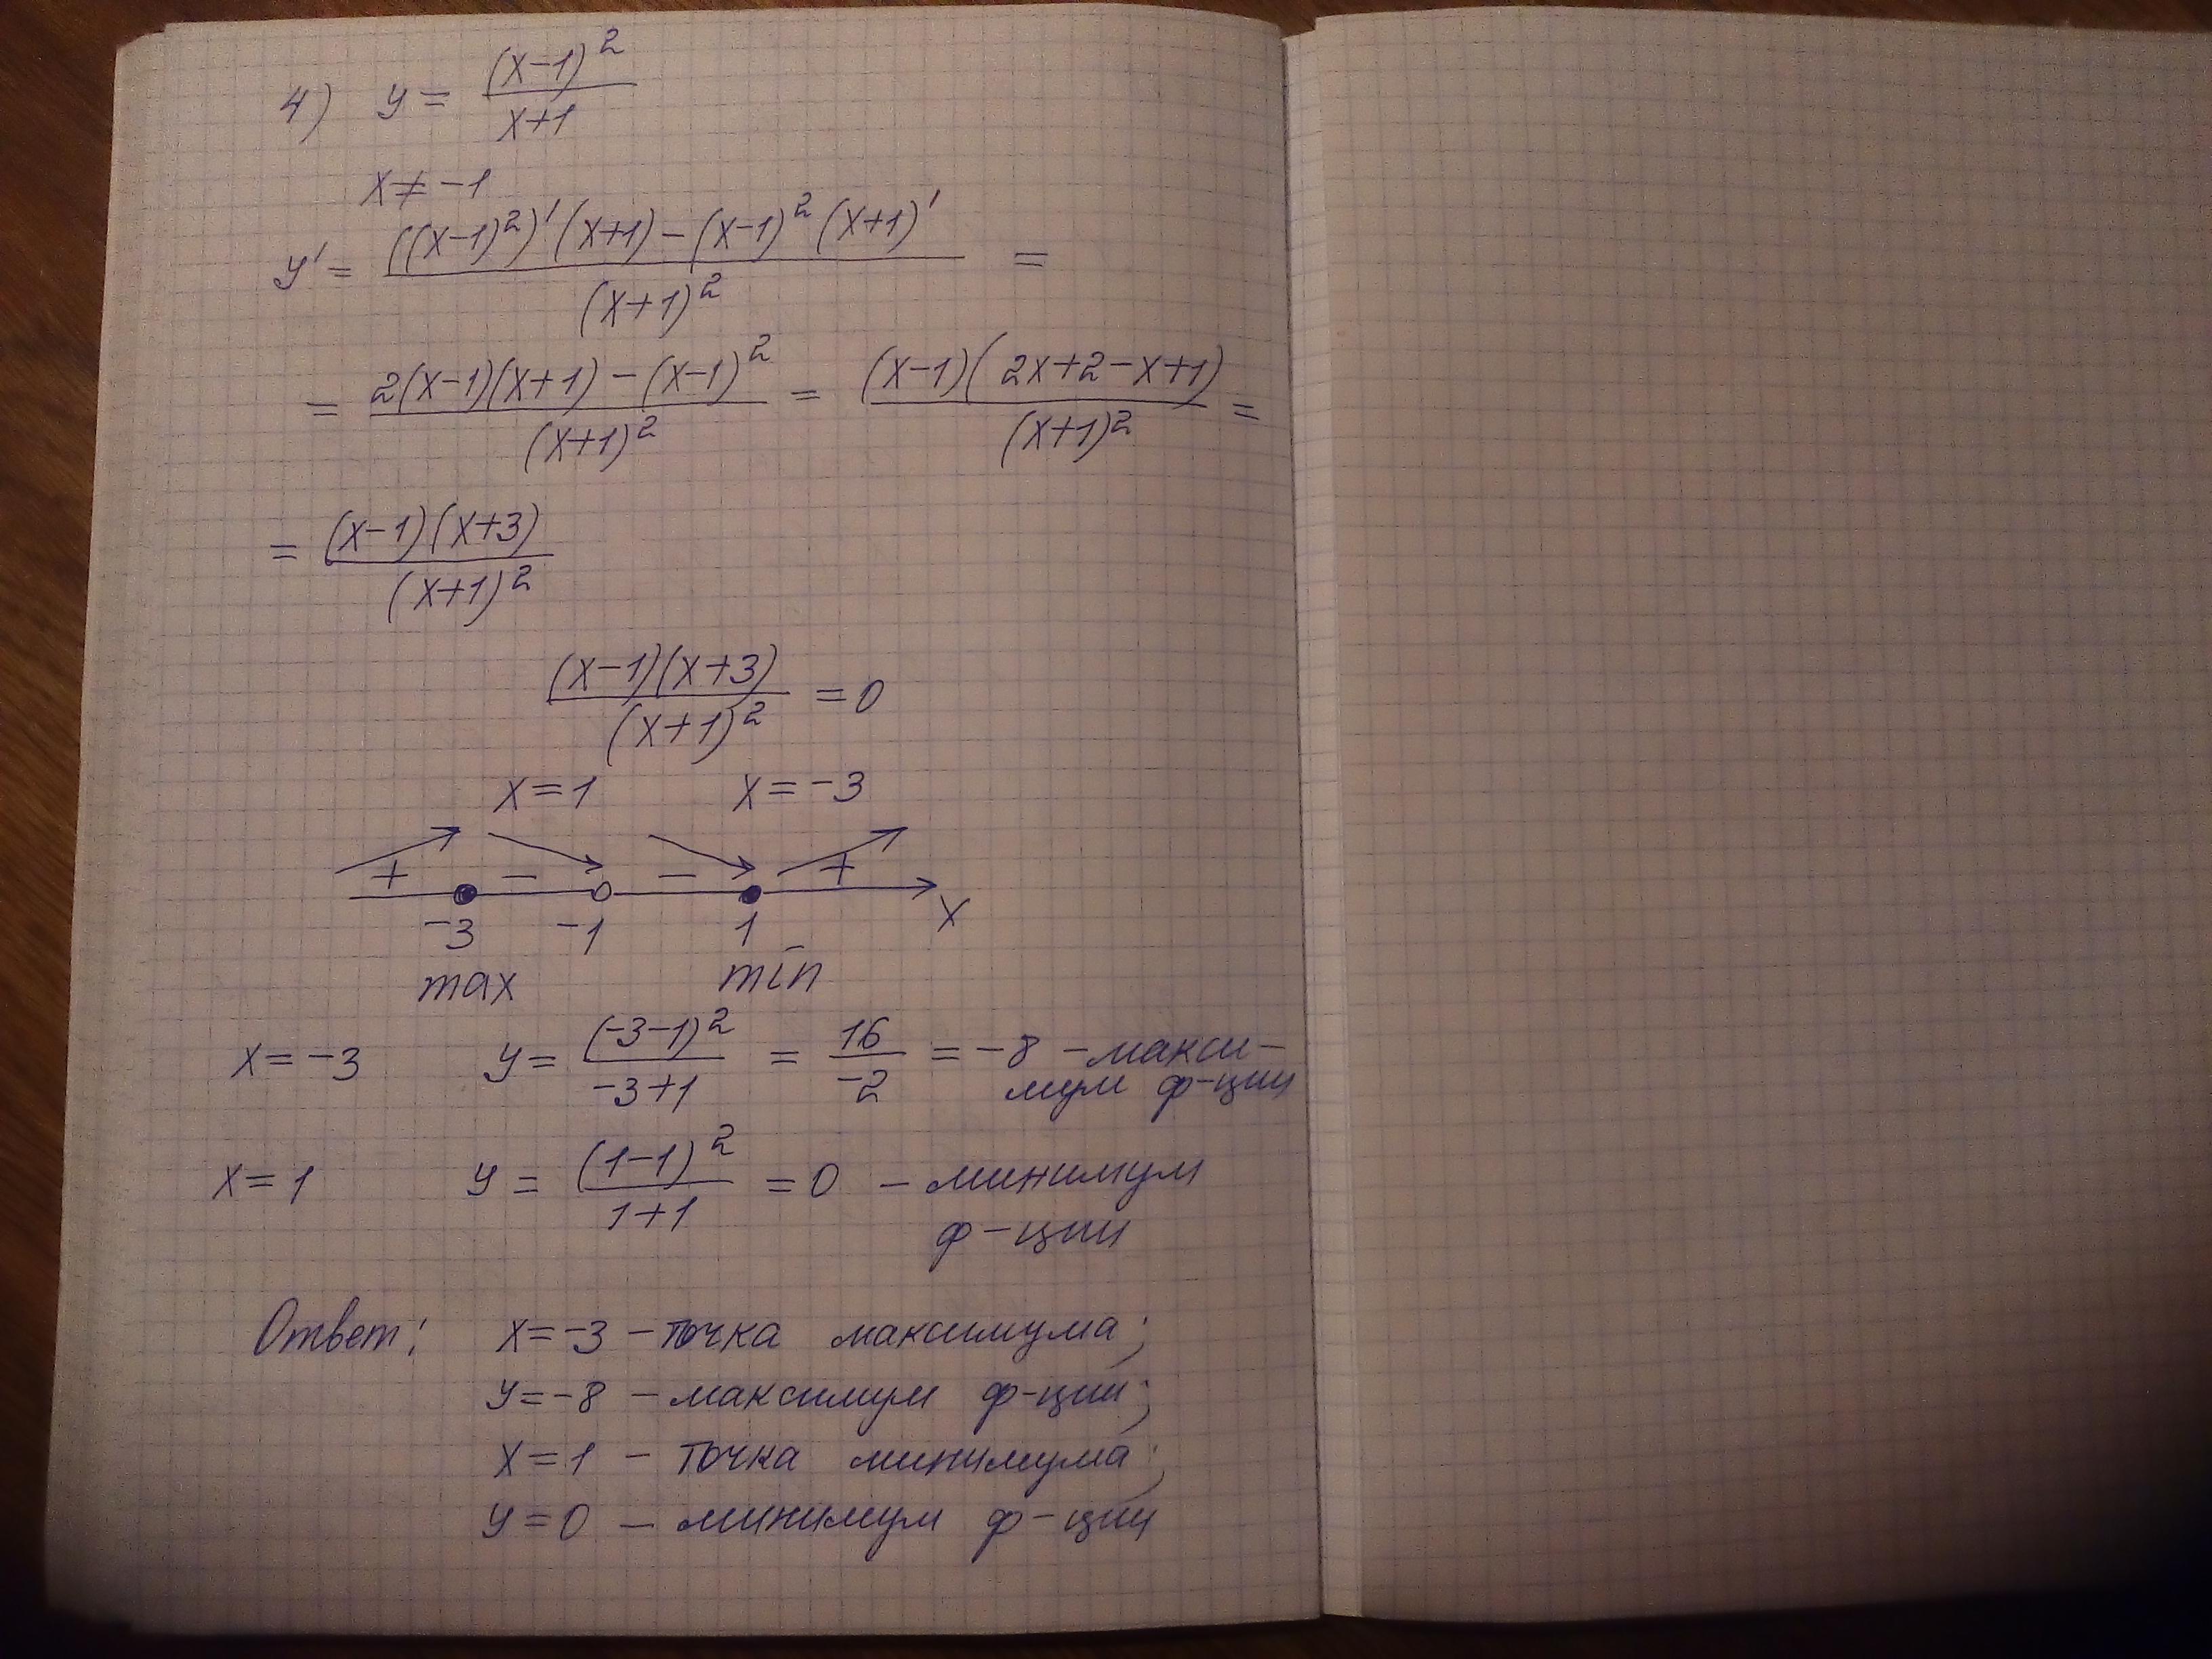 4) y = (x-1)² / x+1
x ≠ -1
y' = ((x-1)²)' (x+1) - (x-1)² (x+1)' / (x+1)² =
= 2(x-1)(x+1) - (x-1)² / (x+1)² = (x-1)(2x+2-x+1) / (x+1)² =
= (x-1)(x+3) / (x+1)²
(x-1)(x+3) / (x+1)² = 0
x = 1 x = -3
+ - - +
-3 -1 1 x
max min
x = -3 y = (-3-1)² / -3+1 = 16 / -2 = -8 - макси-
мум ф-ции
x = 1 y = (1-1)² / 1+1 = 0 - минимум
ф-ции
Ответ: x = -3 - точка максимума;
y = -8 - максимум ф-ции;
x = 1 - точка минимума;
y = 0 - минимум ф-ции